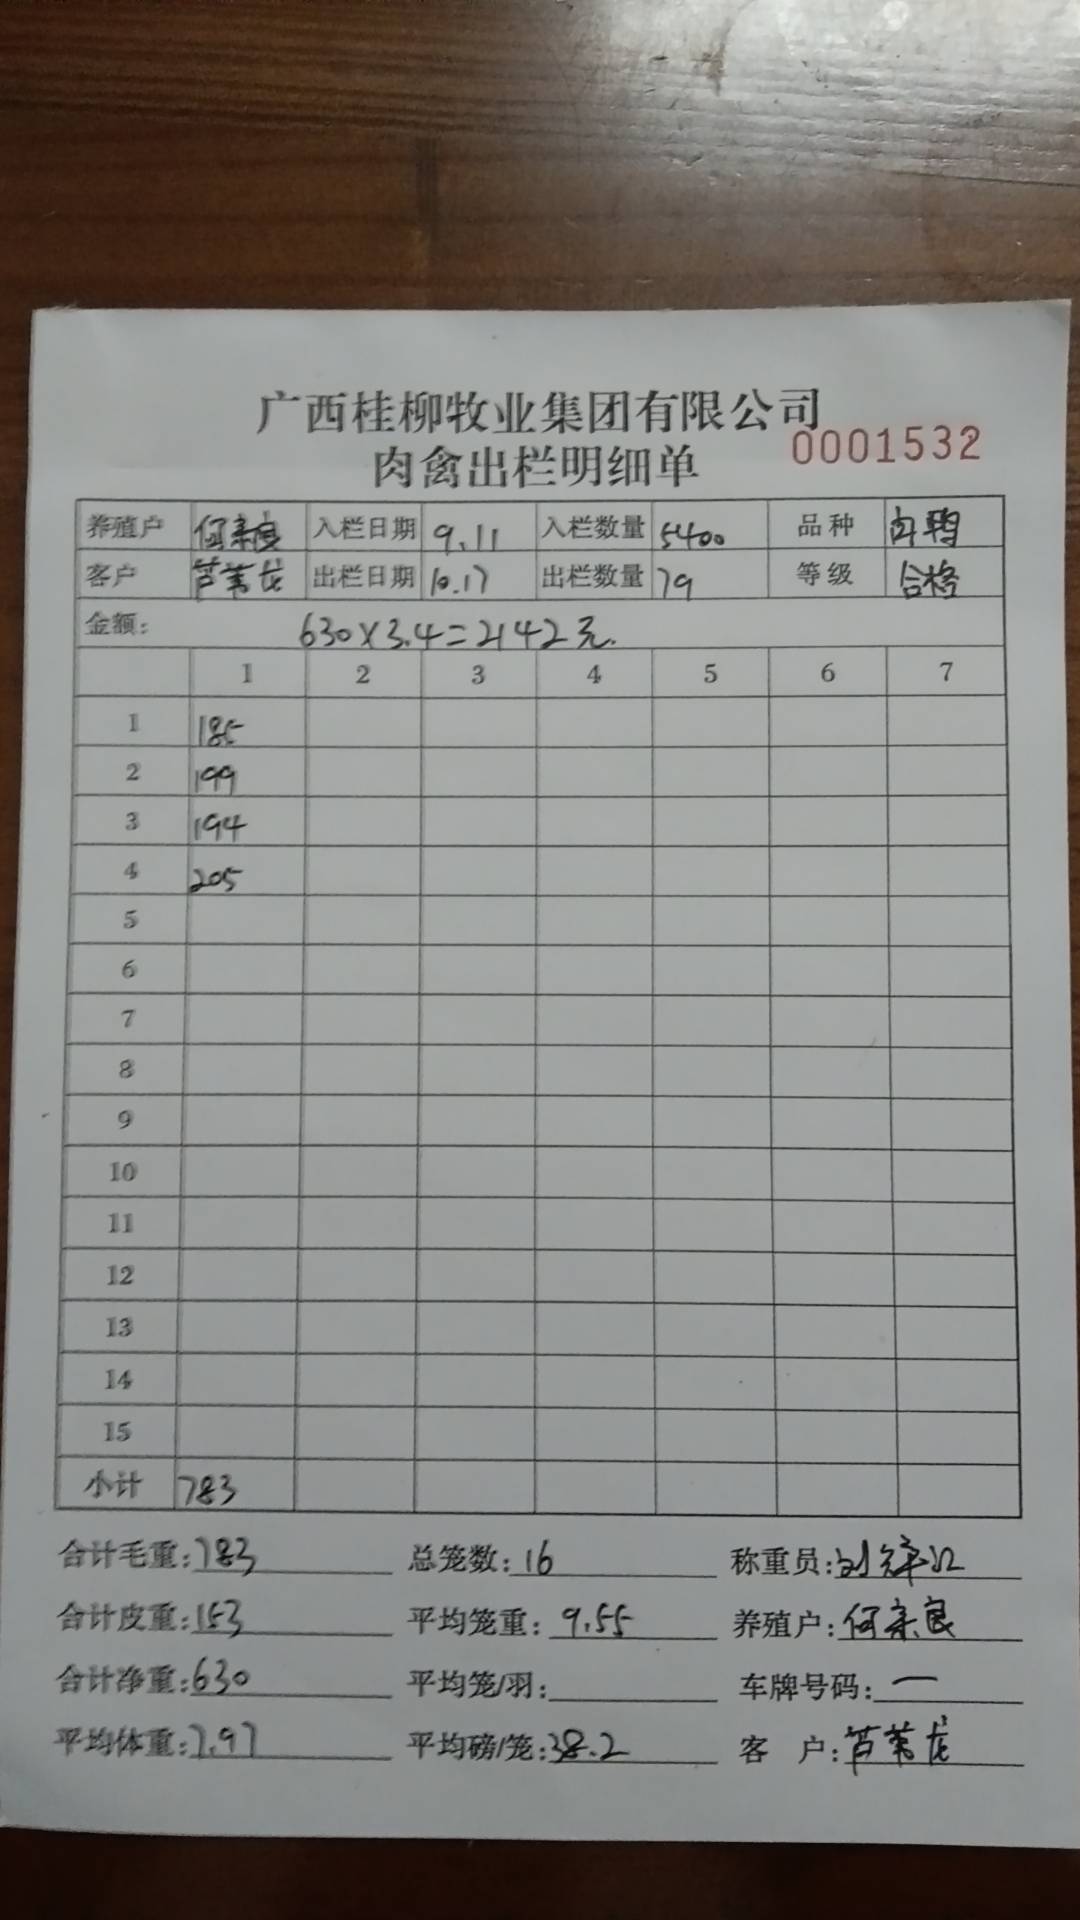 广西桂柳牧业集团有限公司
肉禽出栏明细单 0001532
养殖户 入栏日期 9.11 入栏数量 5400 品种 肉鸭
客户 芦苇龙 出栏日期 10.17 出栏数量 79 等级 合格
金额: 630×3.4=2142元.
1 2 3 4 5 6 7
1 185
2 199
3 194
4 205
5
6
7
8
9
10
11
12
13
14
15
小计 783
合计毛重:783 总笼数:16 称重员:
合计皮重:153 平均笼重:9.55 养殖户:
合计净重:630 平均笼/羽: 车牌号码:一
平均体重:7.97 平均磅/笼:38.2 客 户:芦苇龙